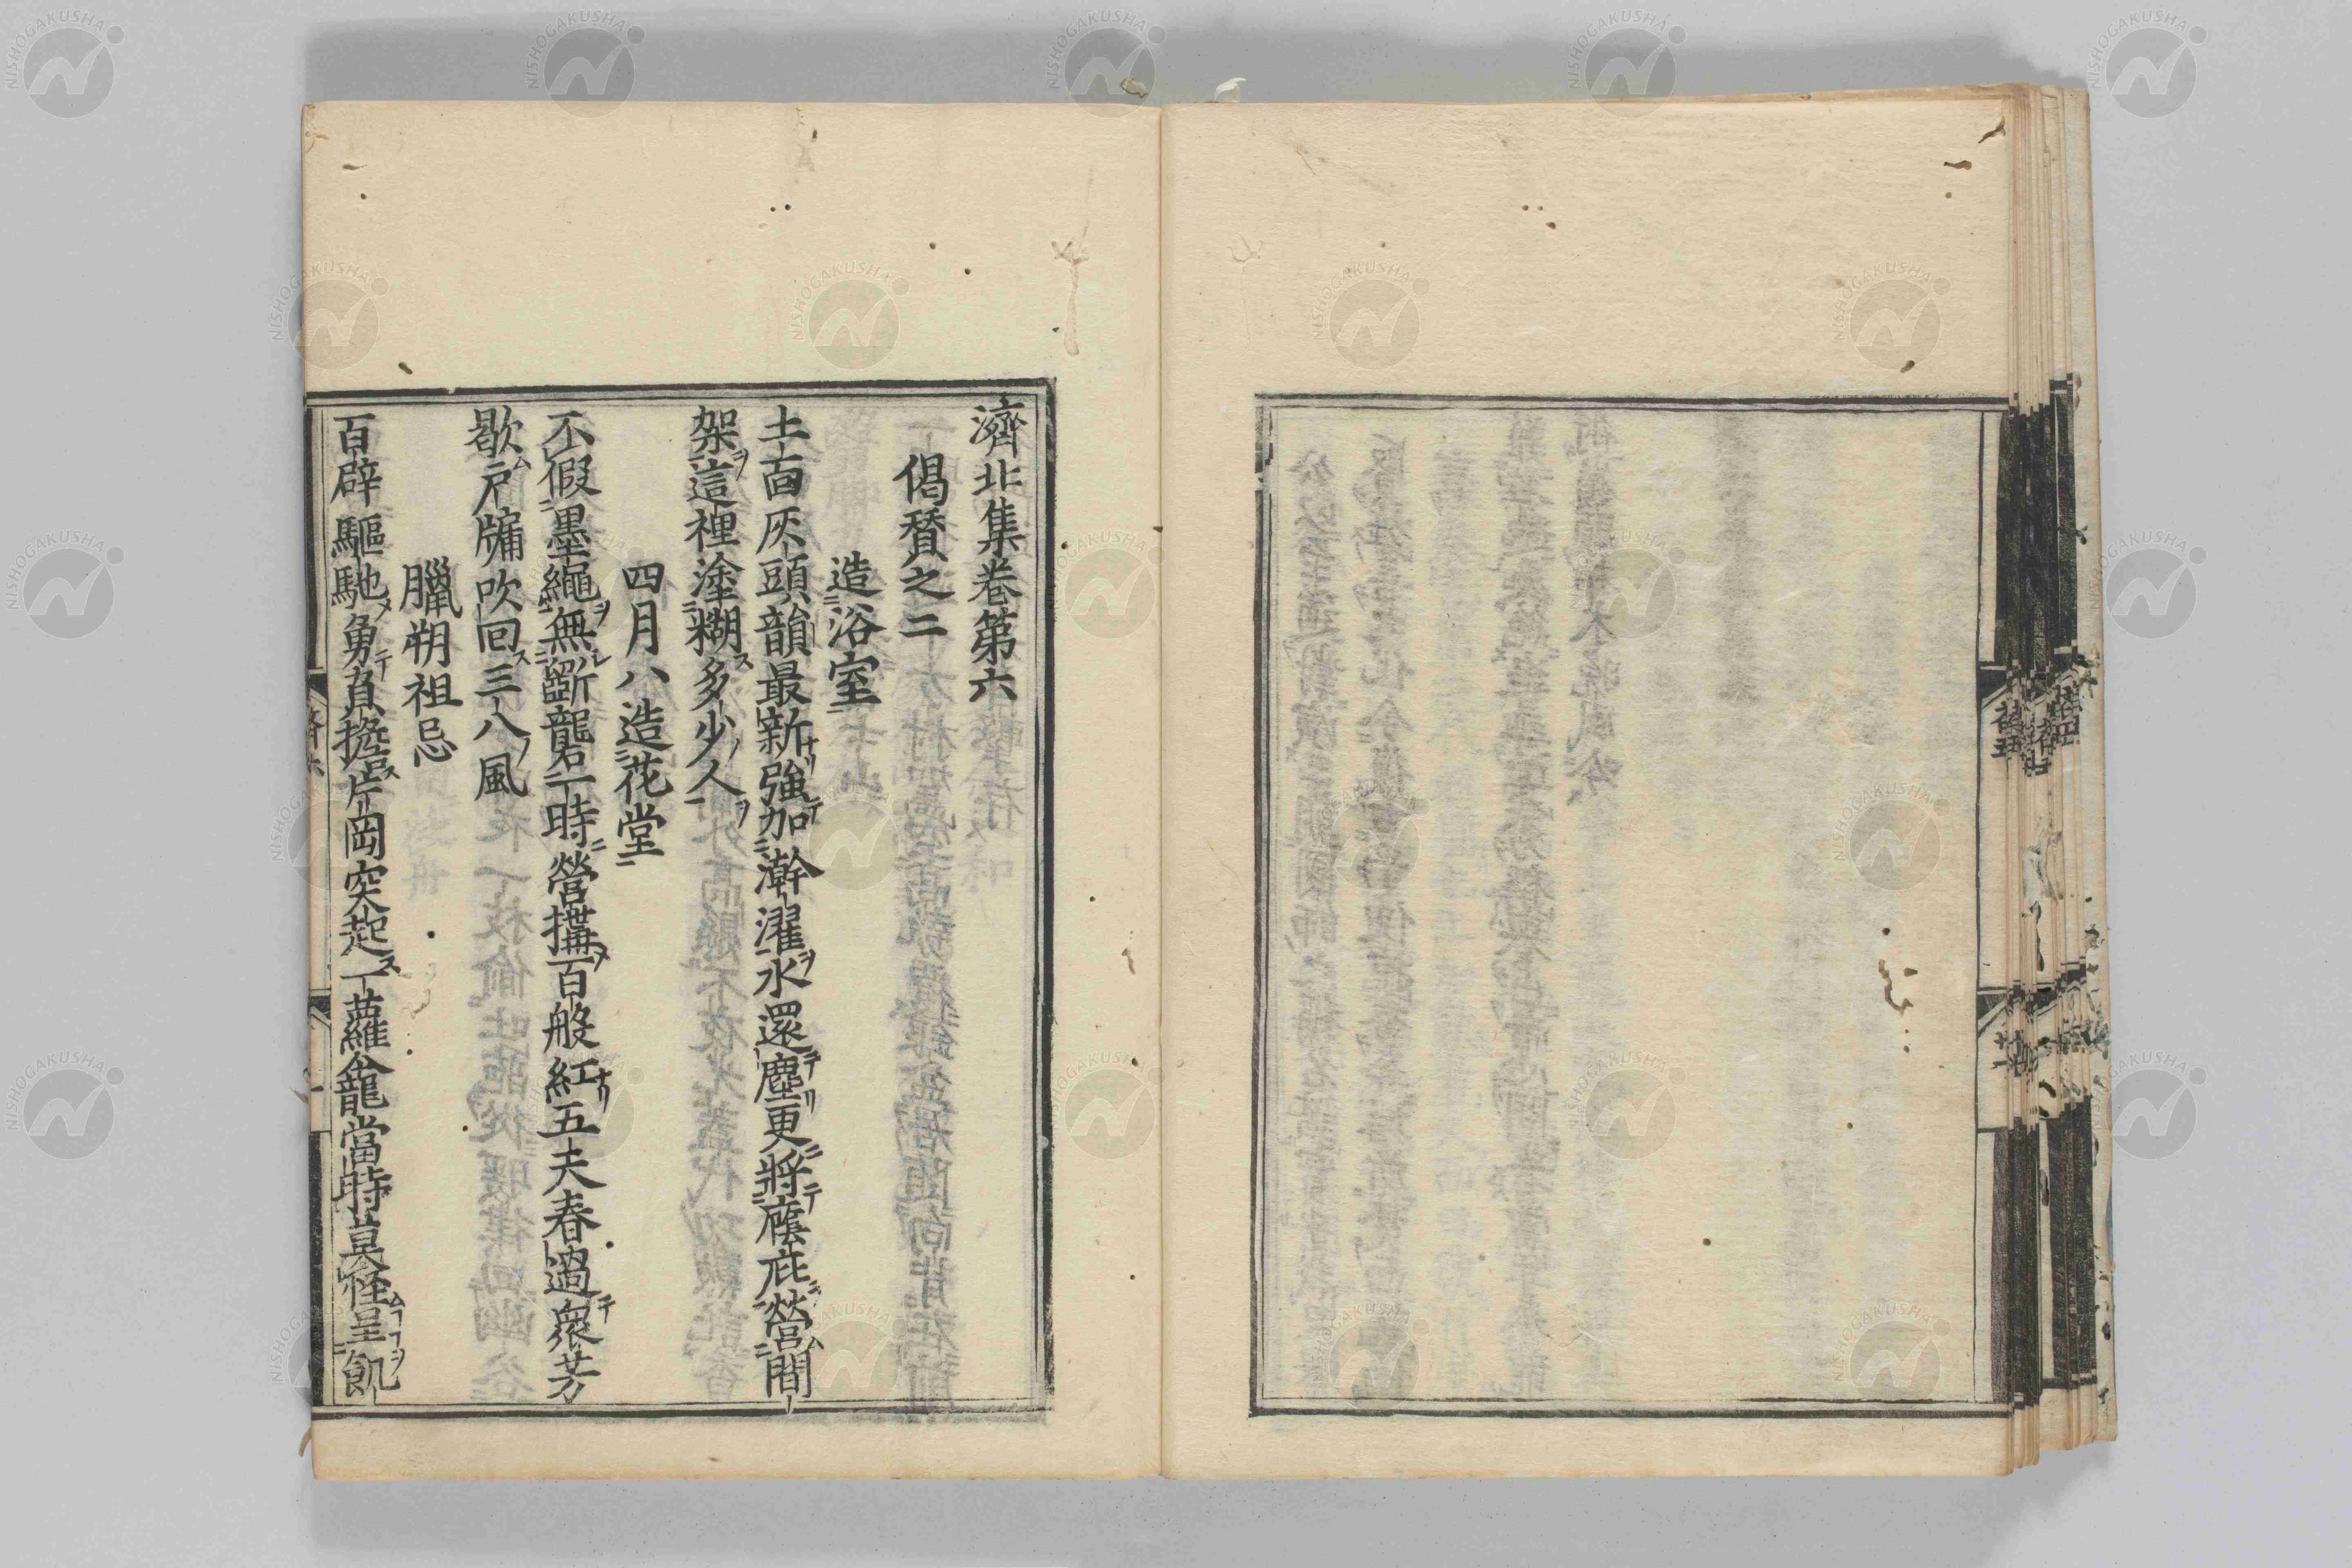 濟北集卷第六
偈賛之二
造浴室
土面灰頭韻最新強加澣濯水還塵更將廕庇營間
架這裡塗糊多少人
四月八造花堂
不假墨繩無斲礱一時營搆百般紅五夫春過衆芳
歇戶牖吹回三八風
臘朔祖忌
百辟驅馳勇負擔片岡突起一蘿龕當時莫怪呈飢
濟六
NISHOGAKUSHA